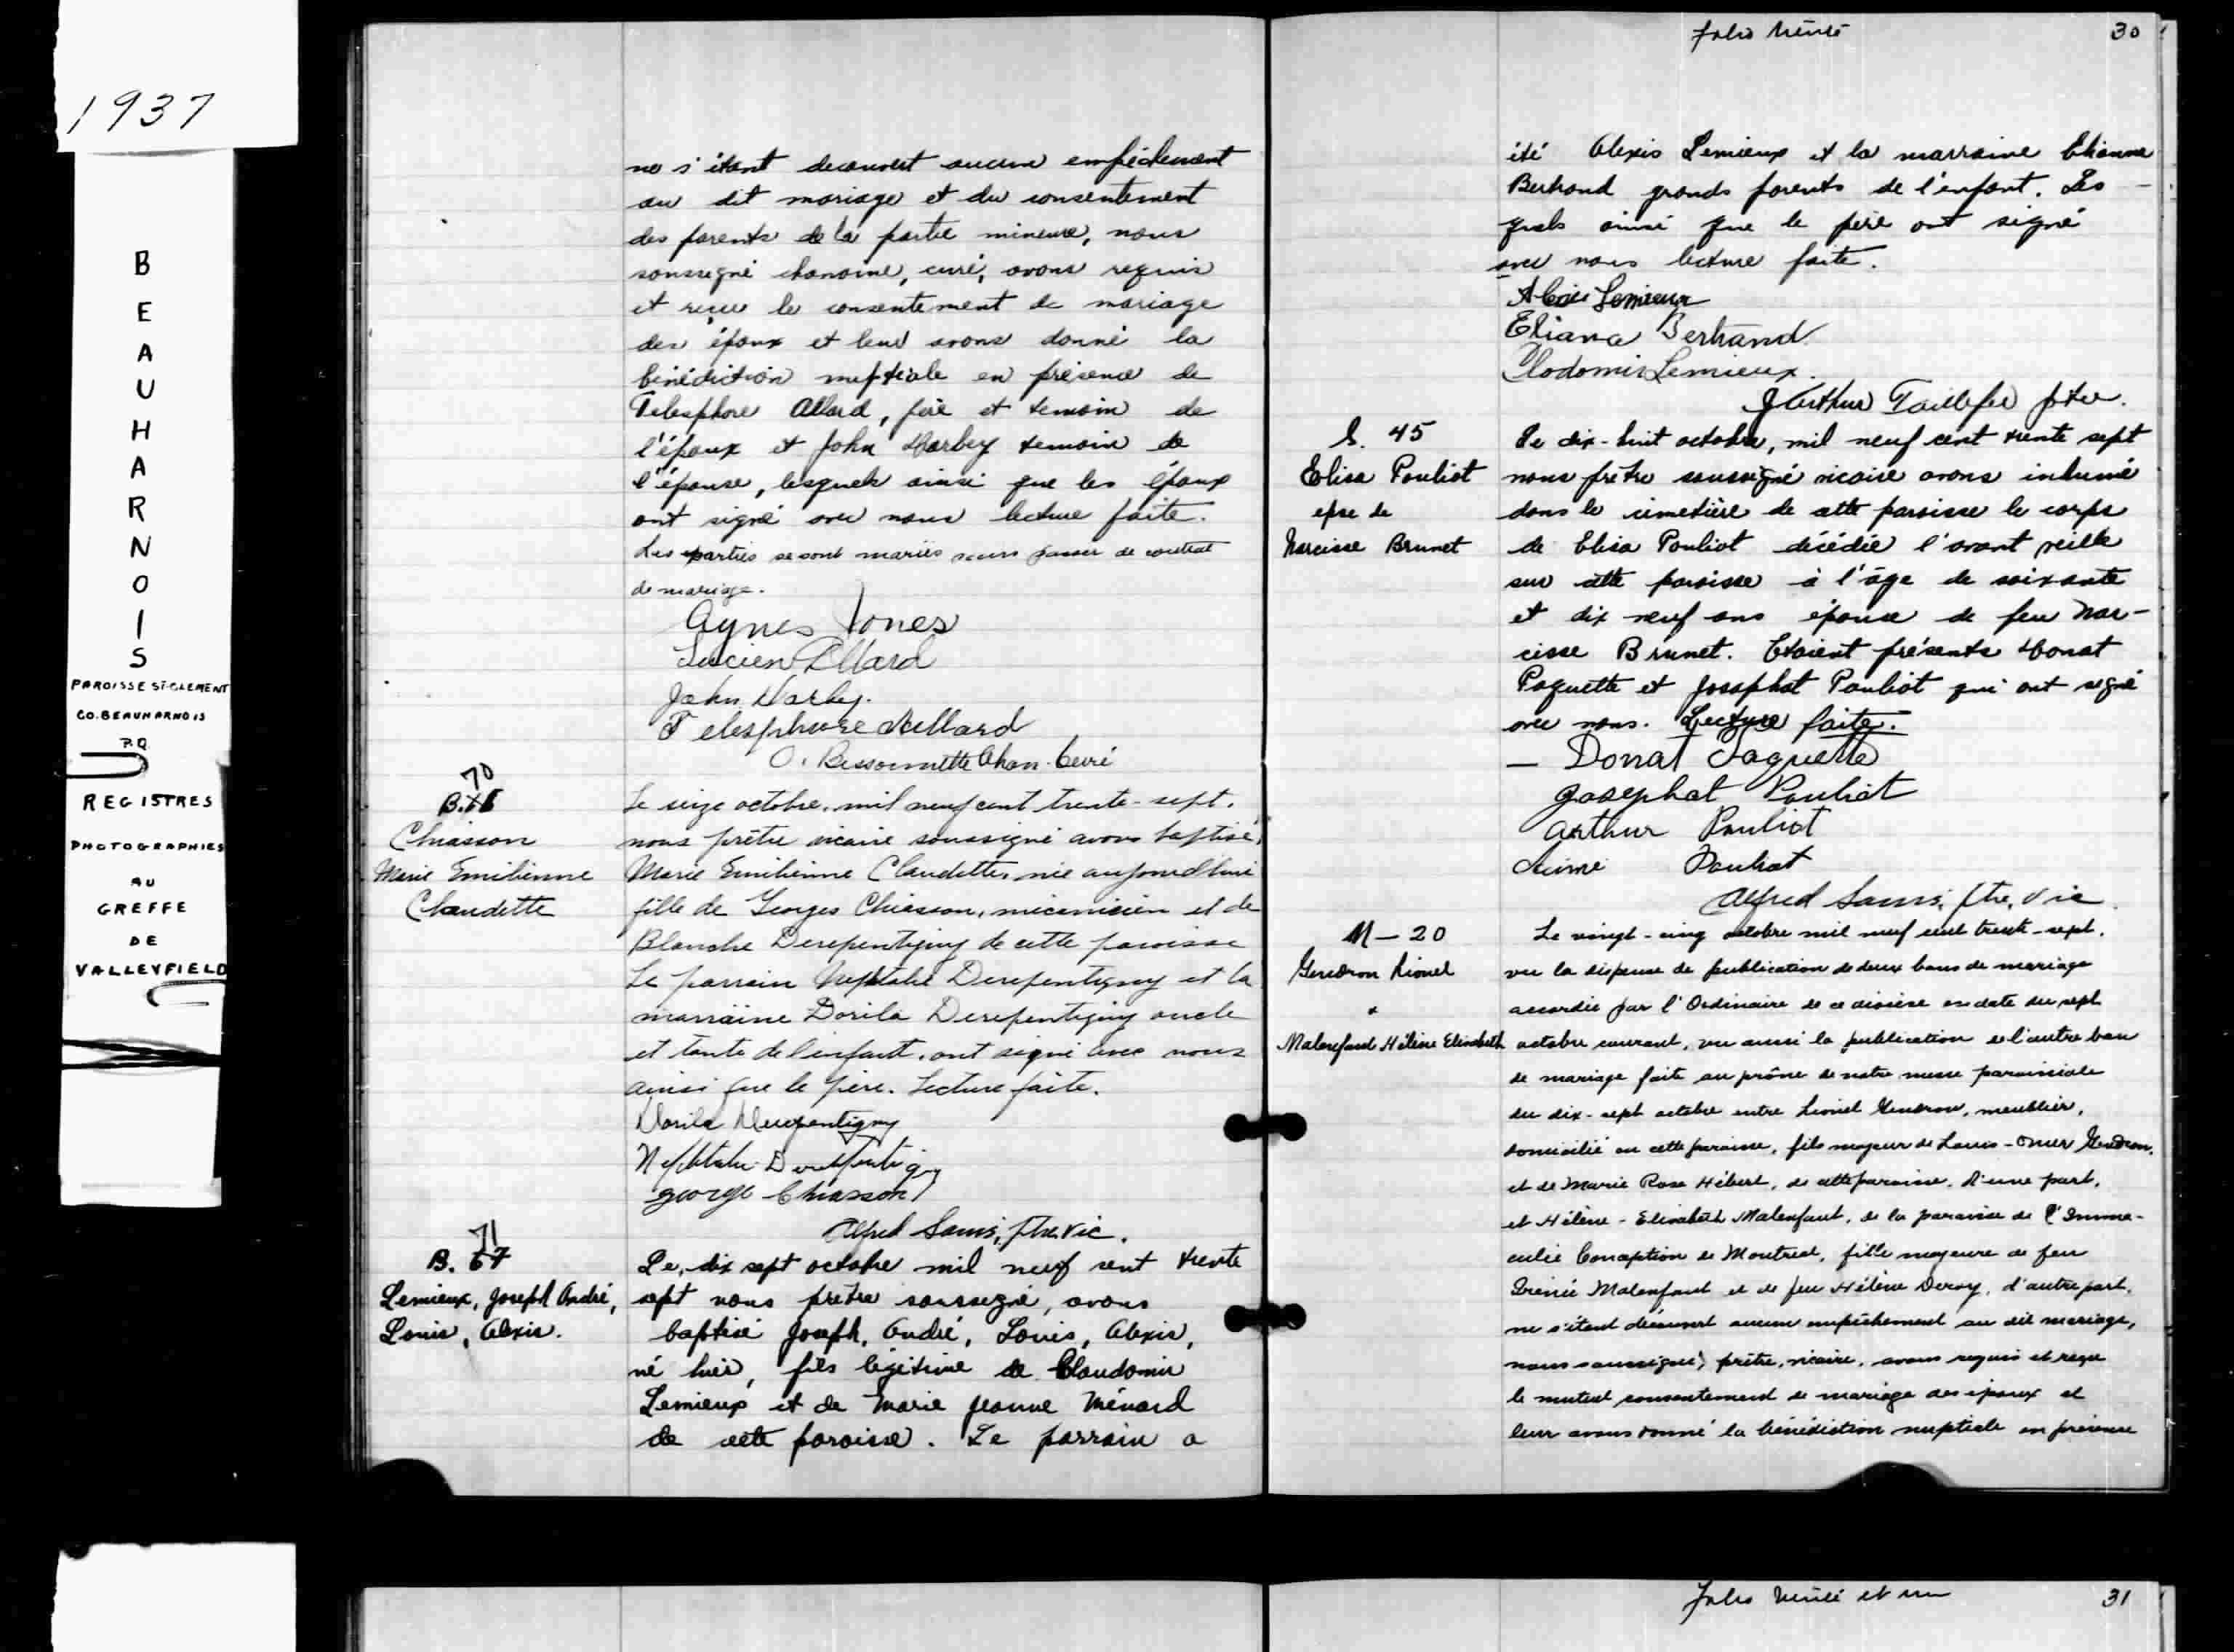 1937
BEAUHARNOIS
PAROISSE ST-CLEMENT
CO. BEAUHARNOIS
P.Q.
REGISTRES
PHOTOGRAPHIES
AU
GREFFE
DE
VALLEYFIELD
ne s'étant decouvert aucun empêchement
au dit mariage et du consentement
des parents de la partie mineure, nous
soussigné chanoine, curé, avons requis
et reçu le consentement de mariage
des époux et leur avons donné la
bénédiction nuptiale en présence de
Telesphore Allard, père et temoin de
l'époux et John Darby temoin de
l'épouse, lesquels ainsi que les époux
ont signé avec nous lecture faite.
Les parties se sont mariés sans passer de contrat
de mariage.
Agnes Jones
Lucien Allard
John Darby.
Telesphore Allard
O. Bissonnette Chan. Curé
70
B.
Chiasson
Marie Emilienne
Claudette
Le seize octobre, mil neuf cent trente-sept,
nous prêtre vicaire soussigné avons baptisé,
Marie Emilienne Claudette, née aujourd'hui
fille de Georges Chiasson, mécanicien et de
Blanche Derepentigny de cette paroisse
Le parrain Nephtalie Derepentigny et la
marraine Dorila Derepentigny oncle
et tante de l'enfant, ont signé avec nous
ainsi que le père. Lecture faite.
Dorila Derepentigny
Nephtalie Derepentigny
George Chiasson
Alfred ptre. vic.
71
B. 67
Lemieux, Joseph André,
Louis, Alexis.
Le, dix sept octobre mil neuf cent trente
sept nous prêtre soussigné, avons
baptisé Joseph, André, Louis, Alexis,
né hier, fils légitime de Claudomir
Lemieux et de Marie Jeanne Ménard
de cette paroisse. Le parrain a
Folio trente 30
été Alexis Lemieux et la marraine Elianna
Bertrand grands parents de l'enfant. Les
quels ainsi que le père ont signé
avec nous lecture faite.
Alexis Lemieux
Eliana Bertrand
Clodomir Lemieux.
J Arthur Taillefer ptre.
S. 45
Elisa Pouliot
epse de
Narcisse Brunet
Le dix-huit octobre, mil neuf cent trente sept
nous prêtre soussigné vicaire avons inhumé
dans le cimetière de cette paroisse le corps
de Elisa Pouliot décédée l'avant veille
sur cette paroisse à l'âge de soixante
et dix neuf ans épouse de feu Nar-
cisse Brunet. Etaient présents Donat
Paquette et Josaphat Pouliot qui ont signé
avec nous. Lecture faite.
— Donat Paquette
Josephat Pouliot
Arthur Pouliot
Aimé Pouliot
Alfred ptre, vic.
M - 20
Gendron Lionel
&
Malenfant Hélène Elisabeth
Le vingt-cinq octobre mil neuf cent trente-sept,
vu la dispense de publication de deux bans de mariage
accordée par l'Ordinaire de ce diocèse en date du sept
octobre courant, vu aussi la publication de l'autre ban
de mariage faite au prône de notre messe paroissiale
du dix-sept octobre entre Lionel Gendron, meublier,
domicilié en cette paroisse, fils majeur de Louis-Omer Gendron,
et de Marie Rose Hébert, de cette paroisse, d'une part,
et Hélène-Elisabeth Malenfant, de la paroisse de l'Imma-
culée Conception de Montréal, fille majeure de feu
Irénée Malenfant et de feu Hélène Deroy, d'autre part,
ne s'étant découvert aucun empêchement au dit mariage,
nous soussigné, prêtre, vicaire, avons requis et reçu
le mutuel consentement de mariage des époux et
leur avons donné la bénédiction nuptiale en présence
Folio trente et un 31